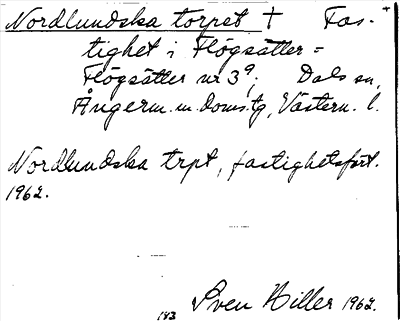 Nordlundska torpet † Fas-+
tighet i Flögsätter =
Flögsätter nr 3⁹; Dals sn,
Ångerm. m. Doms.tg, Västern. l.
Nordlundska trpt, fastighetsfört.
1962.
183 Sven Hiller 1962.